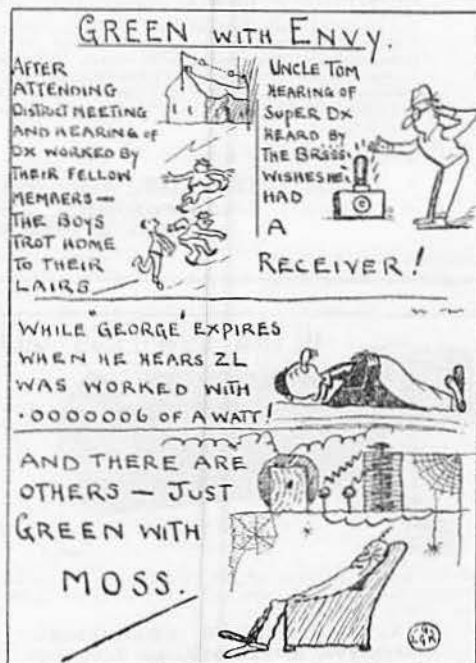 GREEN WITH ENVY.
AFTER
ATTENDING
DISTRICT MEETING
AND HEARING OF
DX WORKED BY
THEIR FELLOW
MEMBERS —
THE BOYS
TROT HOME
TO THEIR
LAIRS
UNCLE TOM
HEARING OF
SUPER DX
HEARD BY
THE
WISHES HE
HAD
A
RECEIVER!
WHILE 'GEORGE' EXPIRES
WHEN HE HEARS ZL
WAS WORKED WITH
.0000006 OF A WATT!
AND THERE ARE
OTHERS — JUST
GREEN WITH
MOSS.